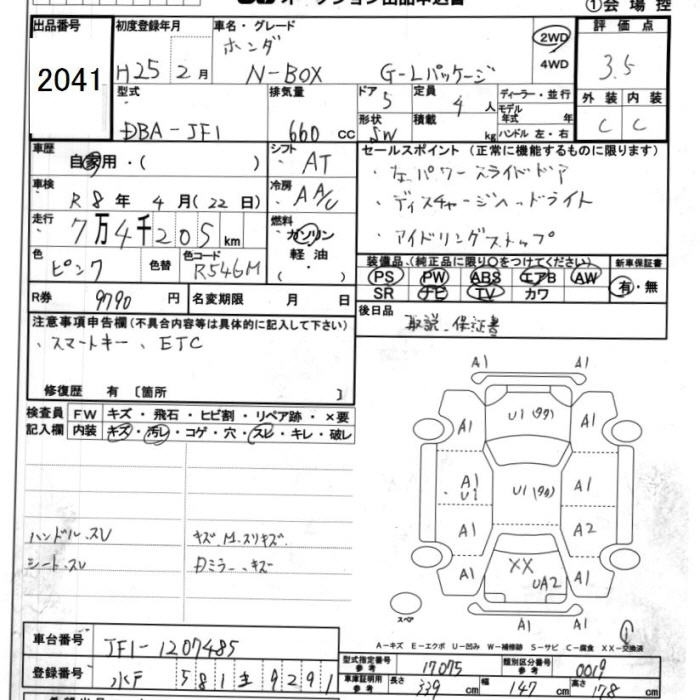 ①会場控
出品番号 2041
初度登録年月 H25 2月
車名・グレード
ホンダ
N-BOX G-Lパッケージ
2WD
4WD
評価点 3.5
外装 内装
C C
型式 DBA-JF1
排気量 660 cc
ドア 5
定員 4人
形状 SW
積載 kg
ディーラー・並行
モデル年式 年
ハンドル 左・右
車歴 自家用・( )
シフト AT
車検 R8年 4月(22日)
冷房 AA/C
走行 7万4千205km
燃料 ガソリン
軽油
・
( )
色 ピンク
色替
色コード R546M
R券 9790円
名変期限 月 日
セールスポイント(正常に機能するものに限ります)
・左パワースライドドア
・ディスチャージヘッドライト
・アイドリングストップ
装備品(純正品に限り○をつけてください)
PS PW ABS エアB AW
SR ナビ TV カワ
新車保証書
有・無
後日品 取説・保証書
注意事項申告欄(不具合内容等は具体的に記入して下さい)
、スマートキー、ETC
修復歴 有〔箇所 〕
検査員記入欄
FW キズ・飛石・ヒビ割・リペア跡・×要
内装 キズ・汚レ・コゲ・穴・スレ・キレ・破レ
ハンドル.スレ キズ M.スリキズ.
シート.スレ Dミラー.キズ
A1 A1
A1 U1(99) A1
A1
U1 U1(90) A1
A1 A2
A1 XX UA2 A1
スペア
A1 A1
A-キズ E-エクボ U-凹み W-補修跡 S-サビ C-腐食 XX-交換済
車台番号 JF1-1207485
登録番号 水戸 581 9291
型式指定番号 参考 17075
類別区分番号 参考 0019
車庫証明用 参考 長さ 339 cm 幅 147 cm 高さ 178 cm